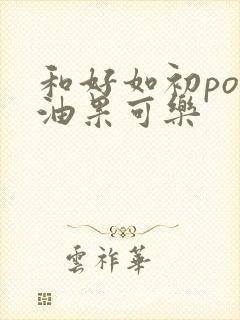 和好如初po
油果可樂
雲祚華